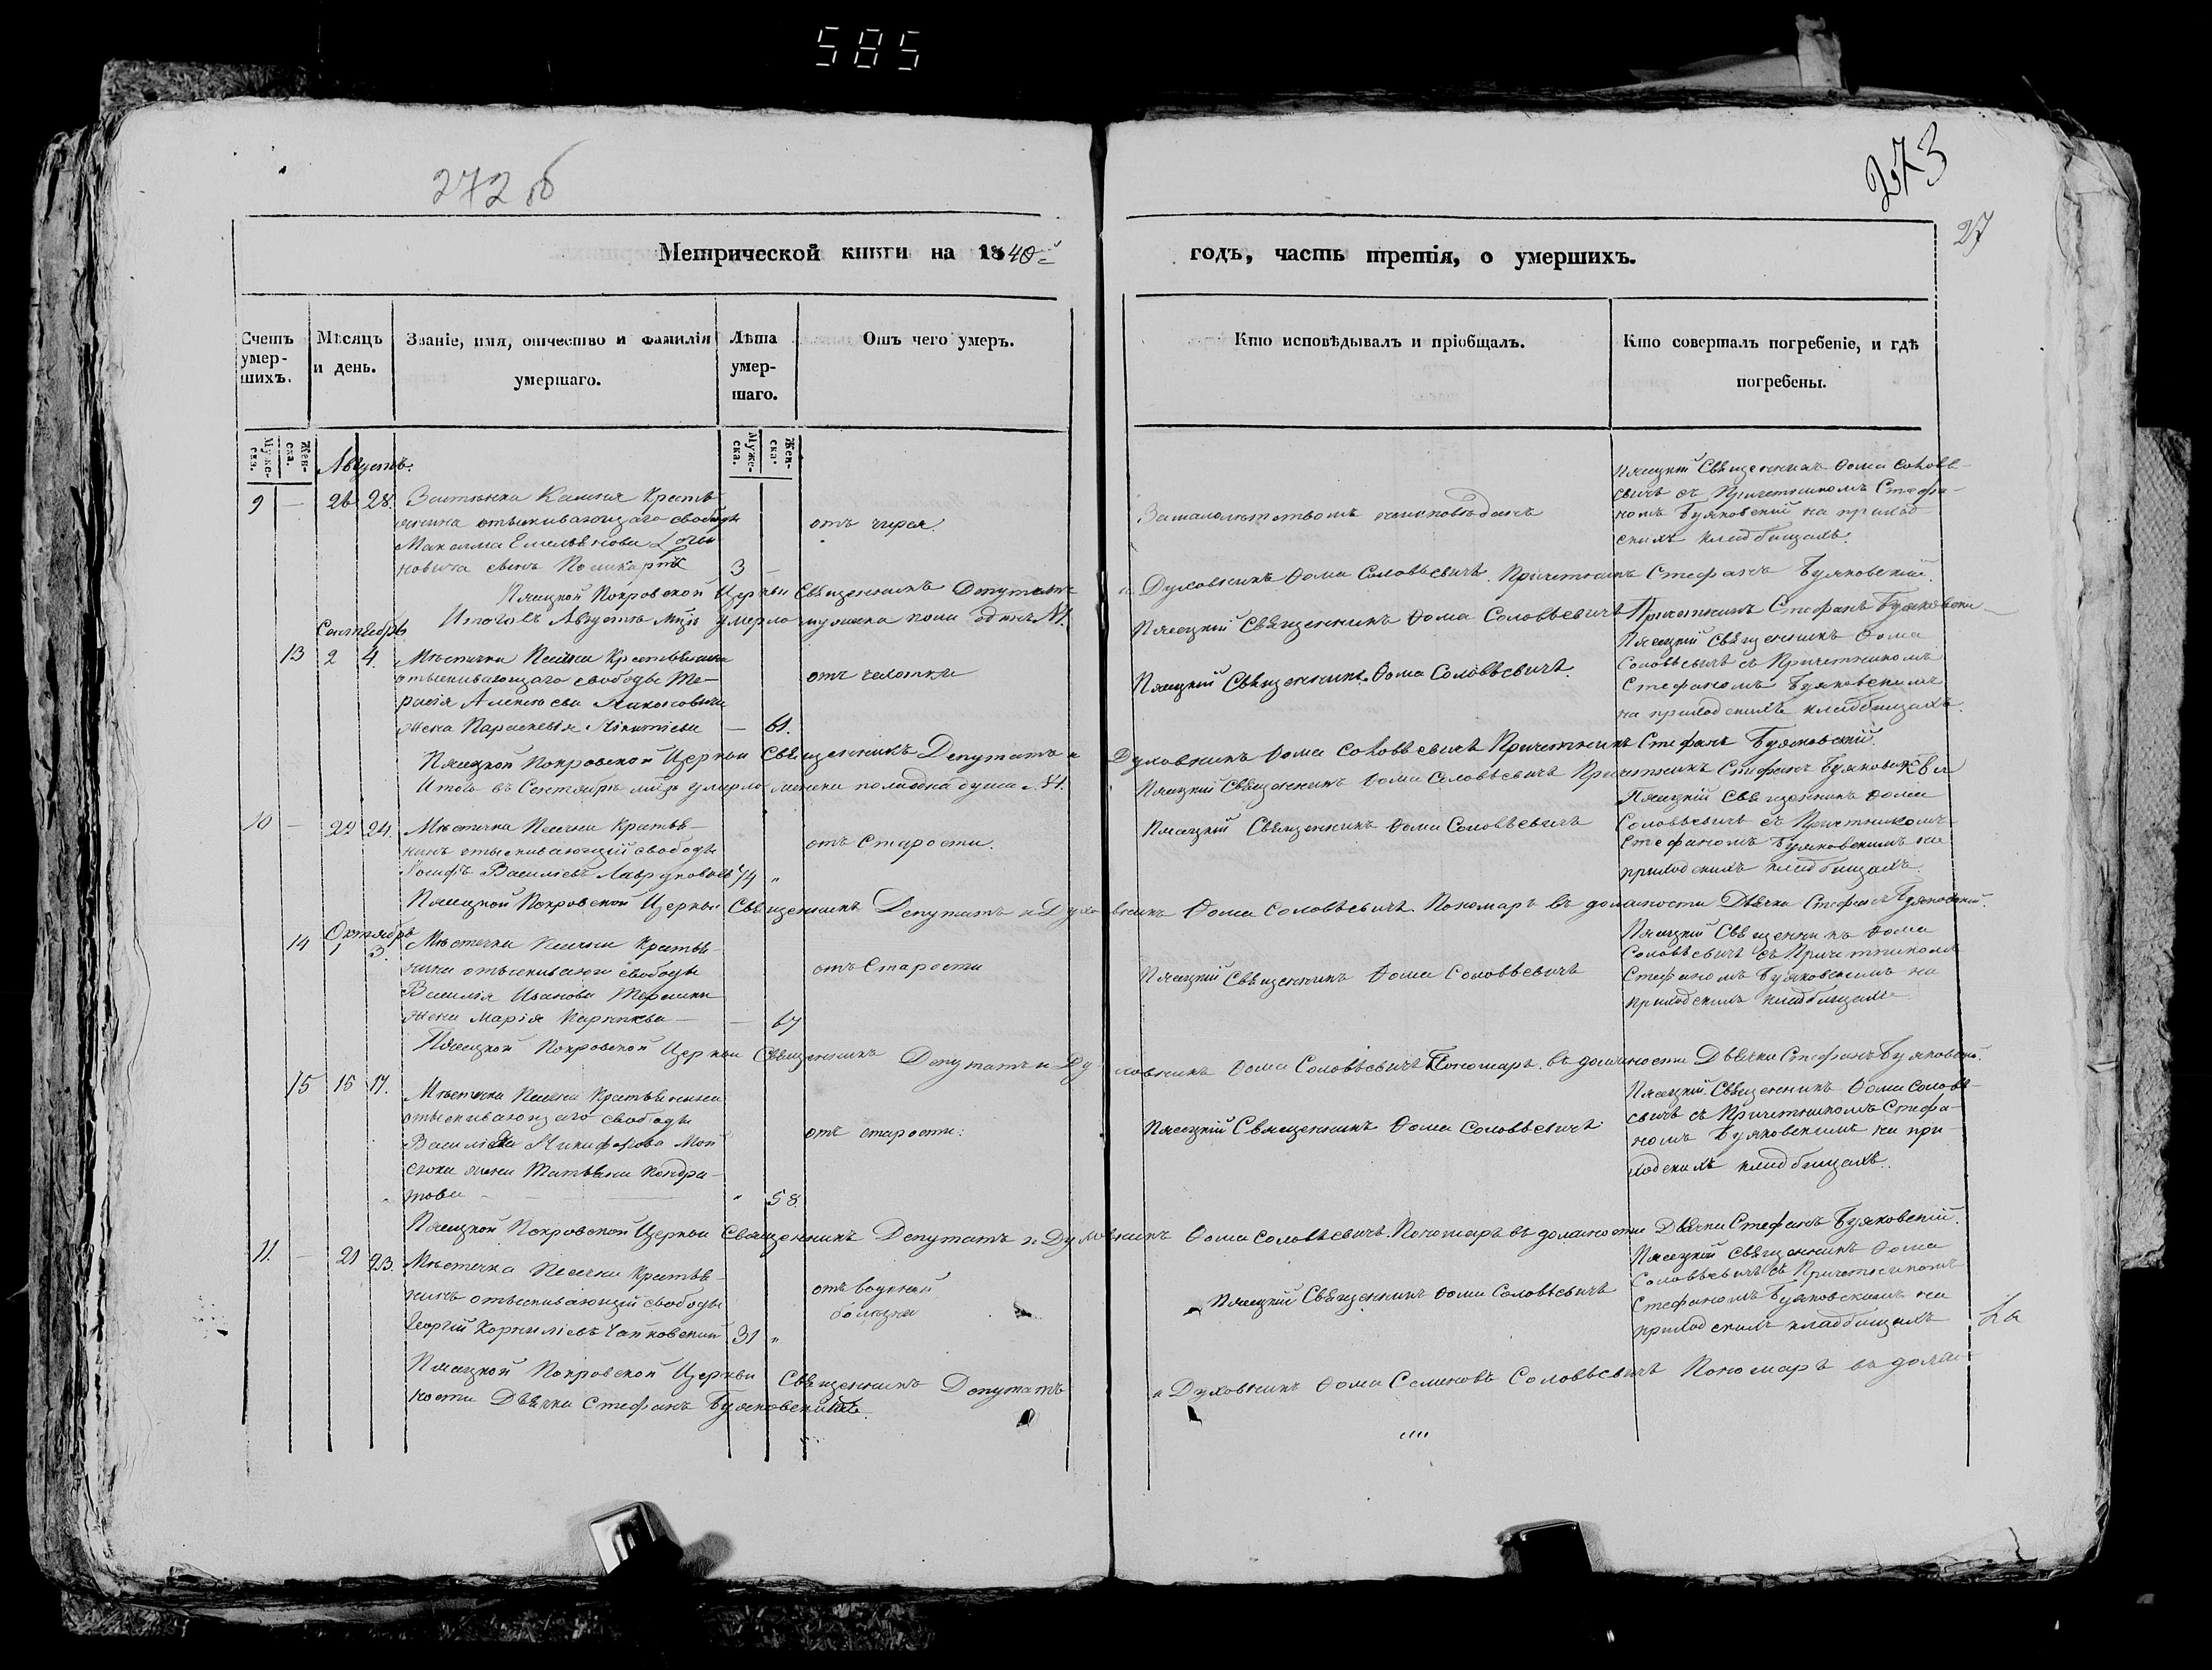 585
272 об
273
27
Метрической книги на 1840й
годъ, часть третія, о умершихъ.
Счетъ умер-
шихъ.
Мѣсяцъ
и день.
Званіе, имя, отчество и фамилія
умершаго.
Лѣта
умер-
шаго.
Отъ чего умеръ.
Кто исповѣдывалъ и пріобщалъ.
Кто совершалъ погребеніе, и гдѣ
погребены.
Муже-
ска.
Жен-
ска.
Муже-
ска.
Жен-
ска.
Августъ.
9 — 26 28.
Застѣнка Камня Кресть-
янина отыскивающаго свободы
Максима Емельянова
новича сынъ Поликарпъ 3 —
отъ чирея.
За малолѣтствомъ неисповѣданъ
Пясецкій Священникъ Ѳома Соловь-
евичъ съ Причетникомъ Стефа-
номъ Буяковскій на приход-
скихъ кладбищахъ.
Пясецкой Покровской Церкви Священникъ Депутатъ и Духовникъ Ѳома Соловьевичъ. Причетникъ Стефанъ Буяковскій.
Итого въ Августѣ мцѣ умерло мужска пола одинъ №1. Пясецкій Священникъ Ѳома Соловьевичъ Причетникъ Стефанъ Буяковскій
Сентябрь
13 2 4.
Мѣстечка Песчки Крестьянина
отыскивающаго свободы Те-
расія Алексѣева
жена Параскевія Никитіева — 61.
отъ чахотки
Пясецкій Священникъ Ѳома Соловьевичъ.
Пясецкій Священникъ Ѳома
Соловьевичъ съ Причетникомъ
Стефаномъ Буяковскимъ
на приходскихъ кладбищахъ.
Пясецкой Покровской Церкви Священникъ Депутатъ и Духовникъ Ѳома Соловьевичъ Причетникъ Стефанъ Буяковскій.
Итого въ Сентябрѣ мцѣ умерло женска пола одна душа №1. Пясецкій Священникъ Ѳома Соловьевичъ Причетникъ Стефанъ Буяковскій
10 — 22 24.
Мѣстечка Песчки Крестья-
нинъ отыскивающій свободы
Іосифъ Василіевъ 74 "
отъ Старости.
Пясецкій Священникъ Ѳома Соловьевичъ
Пясецкій Священникъ Ѳома
Соловьевичъ съ Причетникомъ
Стефаномъ Буяковскимъ на
приходскихъ кладбищахъ.
Пясецкой Покровской Церкви Священникъ Депутатъ и Духовникъ Ѳома Соловьевичъ. Пономаръ въ должности Дьячка Стефанъ Буяковскій.
Октябрь
14 1 3.
Мѣстечка Песчки Крестья-
нина отыскивающ свободы
Василія Иванова
жена Марія — — 67
отъ Старости
Пясецкій Священникъ Ѳома Соловьевичъ
Пясецкій Священникъ Ѳома
Соловьевичъ съ Причетникомъ
Стефаномъ Буяковскимъ на
приходскихъ кладбищахъ
Пясецкой Покровской Церкви Священникъ Депутатъ и Духовникъ Ѳома Соловьевичъ Пономаръ въ должности Дьячка Стефанъ Буяковскій.
15 15 17.
Мѣстечка Песчки Крестьянина
отыскивающаго свободы
Василія Никифорова Мой
сюка жена Татьяна Кондра-
това — " 58.
отъ старости.
Пясецкій Священникъ Ѳома Соловьевичъ
Пясецкій Священникъ Ѳома Соловь-
евичъ съ Причетникомъ Стефа-
номъ Буяковскимъ на при-
ходскихъ кладбищахъ.
Пясецкой Покровской Церкви Священникъ Депутатъ и Духовникъ Ѳома Соловьевичъ. Пономаръ въ должности Дьячка Стефанъ Буяковскій.
11. — 21 23.
Мѣстечка Песчки Крестья-
нинъ отыскивающій свободы
Георгій Корниліевъ Чайковскій 31 "
отъ водяной
болѣзни
Пясецкій Священникъ Ѳома Соловьевичъ
Пясецкій Священникъ Ѳома
Соловьевичъ съ Причетникомъ
Стефаномъ Буяковскимъ на
приходскихъ кладбищахъ
Пясецкой Покровской Церкви Священникъ Депутатъ и Духовникъ Ѳома Семеновъ Соловьевичъ Пономаръ въ долж-
ности Дьячка Стефанъ Буяковскій.